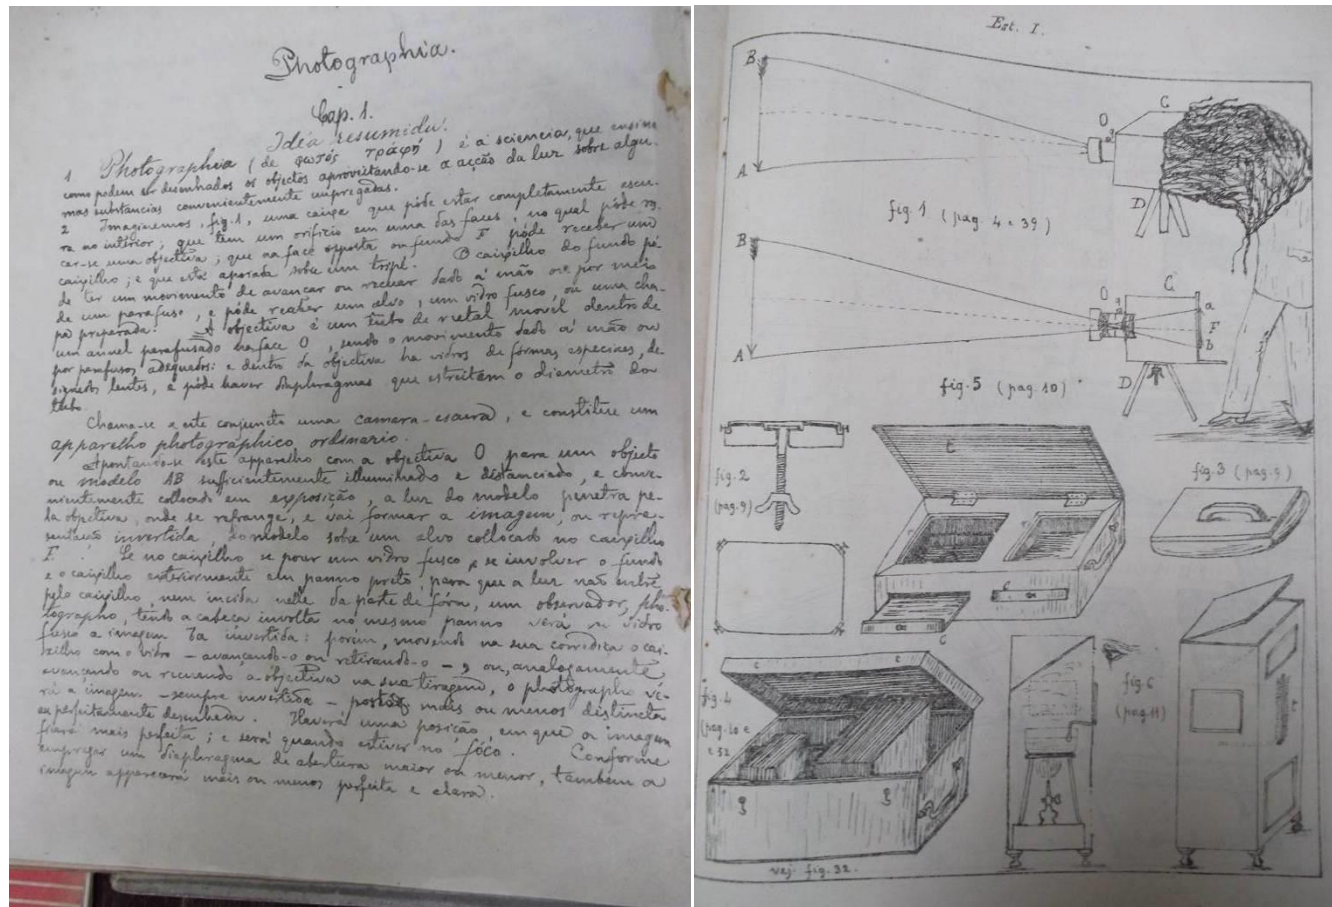 Photographia.
Cap. 1.
Idéa resumida.
1 Photographia (de φωτός γράφή) é a sciencia, que ensina
como podem ser desenhados os objectos aproveitando-se a acção da luz sobre algu-
mas substancias convenientemente empregadas.
2 Imaginemos, fig. 1, uma caixa que póde estar completamente escu-
ra no interior; que tem um orificio em uma das faces, no qual póde
car-se uma objectiva; que na face opposta ou fundo F póde receber um
caixilho; e que está apoiada sobre um tripé. O caixilho do fundo pó-
de ter um movimento de avançar ou recuar dado á mão ou por meio
de um parafuso, e póde receber um alvo, um vidro fusco, ou uma cha-
pa preparada. A objectiva é um tubo de metal movel dentro de
um annel parafusado na face O, sendo o movimento dado á mão ou
por parafusos adequados: e dentro da objectiva ha vidros de fórmas especiaes, de-
signados lentes, e póde haver diaphragmas que estreitam o diametro do
tubo.
Chama-se a este conjuncto uma camera-escura, e constitue um
apparelho photographico ordinario.
Apontando-se este apparelho com a objectiva O para um objecto
ou modelo AB sufficientemente illuminado e distanciado, e conve-
nientemente collocado em exposição, a luz do modelo penetra pe-
la objectiva, onde se refrange, e vai formar a imagem, ou repre-
sentação invertida, do modelo sobre um alvo collocado no caixilho
F. Se no caixilho se pozer um vidro fusco, e se involver o fundo
e o caixilho exteriormente em panno preto, para que a luz não entre
pelo caixilho nem incida nelle da parte de fóra, um observador, pho-
tographo, tendo a cabeça involta no mesmo panno verá no vidro
fusco a imagem ba invertida: porém, movendo na sua corrediça o cai-
xilho com o vidro – avançando-o ou retirando-o –, ou, analogamente,
avançando ou recuando a objectiva na sua tiragem, o photographo ve-
rá a imagem – sempre invertida – mais ou menos distincta
ou perfeitamente desenhada. Haverá uma posição, em que a imagem
ficará mais perfeita; e será quando estiver no fóco. Conforme
empregar um diaphragma de abertura maior ou menor, tambem a
imagem apparecerá mais ou menos perfeita e clara.
Est. I.
B
A
O
C
D
fig. 1 (pag. 4 e 39)
B
A
O
C
a
F
b
D
fig. 5 (pag. 10)
fig. 2
(pag. 9)
C
fig. 3 (pag. 9)
C
fig. 4
(pag. 10 e
e 52
fig. 6
(pag. 11)
vej. fig. 32.